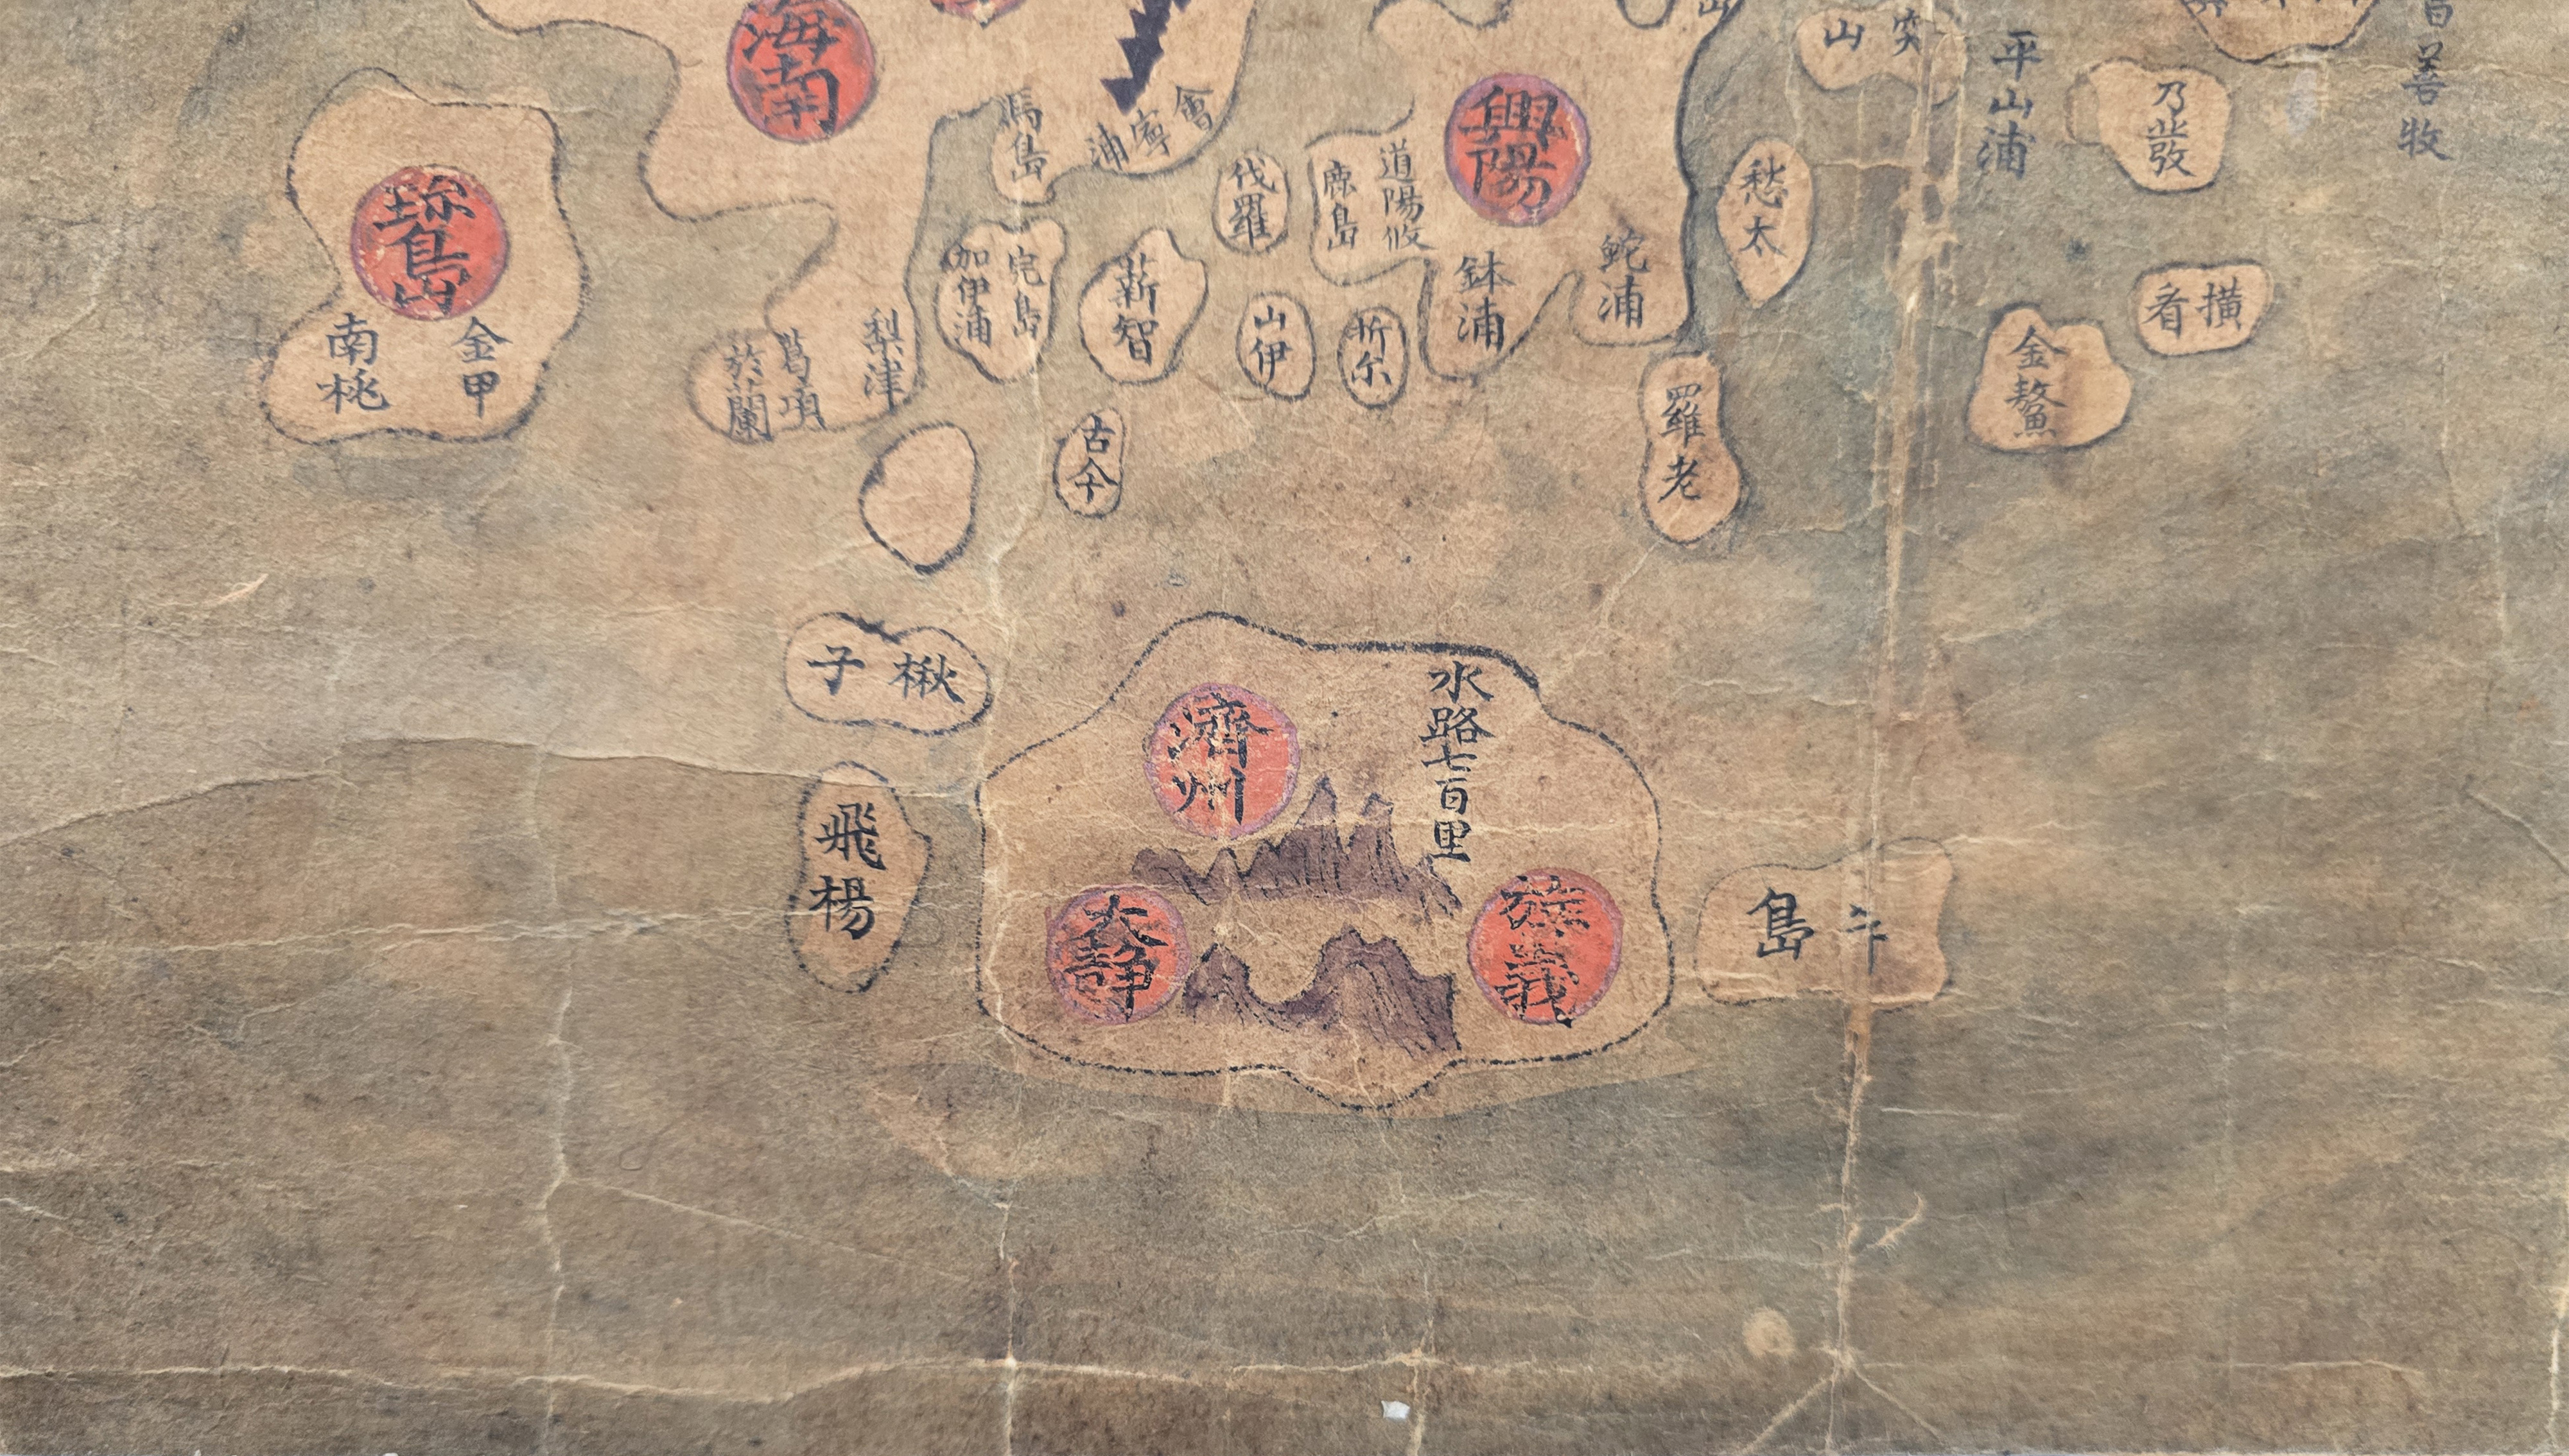 海南
興陽
珎島
南桃
金甲
馬島
會寧浦
伐羅
鹿島
道陽
鉢浦
鮀浦
愁太
突山
平山浦
善牧
乃發
橫看
金鰲
加伊浦
完島
薪智
山伊
折尔
梨津
葛項
於蘭
古今
羅老
楸子
飛楊
濟州
水路七百里
大静
旌義
牛島